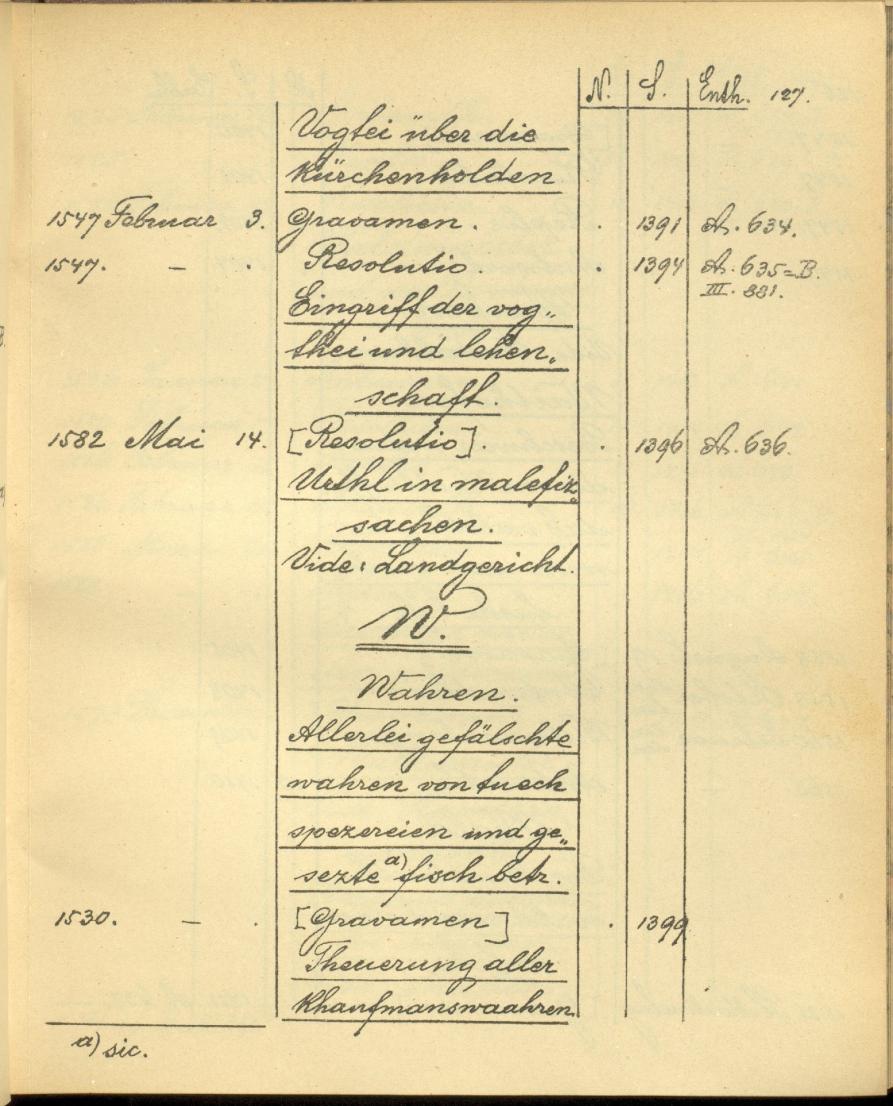 N. S. Enth. 127.
Vogtei über die
Kürchenholden
1547 Februar 3. Gravamen. . 1391 A. 634.
1547. — . Resolutio. . 1394 A. 635=B.
III. 881.
Eingriff der vog„
thei und lehen„
schaft.
1582 Mai 14. [Resolutio]. . 1396 A. 636.
Urthl in malefiz„
sachen.
Vide: Landgericht.
W.
Wahren.
Allerlei gefälschte
wahren von tuech
spezereien und ge„
sezte a) fisch betr.
1530. — . [Gravamen] . 1399
Theuerung aller
Khaufmanswaahren
a) sic.